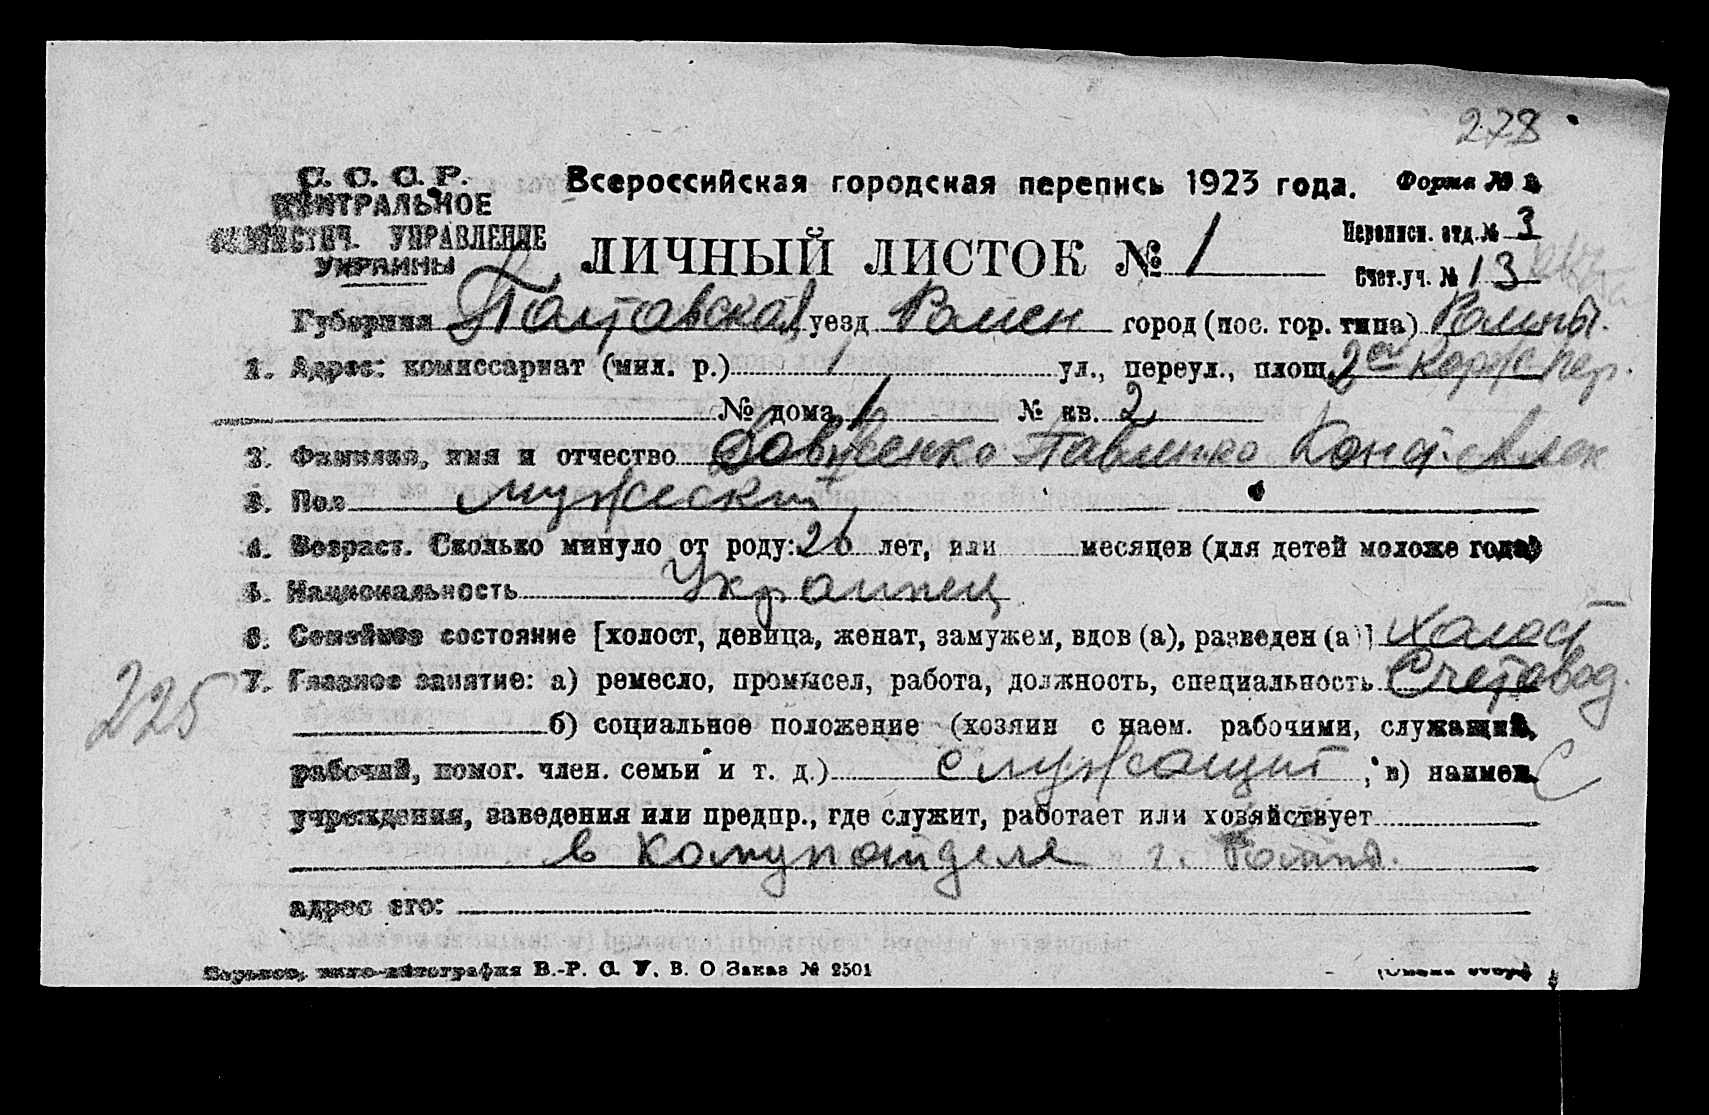 278
С. С. С. Р. Всероссийская городская перепись 1923 года. Форма №
ЦЕНТРАЛЬНОЕ
СТАТИСТИЧ. УПРАВЛЕНИЕ
УКРАИНЫ
ЛИЧНЫЙ ЛИСТОК № 1
Переписн. отд. № 3
Счет. уч. № 13
Губерния Полтавская, уезд Ромен город (пос. гор. типа) Ромны.
1. Адрес: комиссариат (мил. р.) 1 ул., переул., площ. 2ой Корж пер.
№ дома 1 № кв. 2
2. Фамилия, имя и отчество Довженко Павленко Конст. Алек
3. Пол мужеский
4. Возраст. Сколько минуло от роду: 26 лет, или месяцев (для детей моложе года)
5. Национальность Украинец
6. Семейное состояние [холост, девица, женат, замужем, вдов (а), разведен (а)] Холост
7. Главное занятие: а) ремесло, промысел, работа, должность, специальность Счетовод.
225
б) социальное положение (хозяин с наем. рабочими, служащий,
рабочий, помог. член. семьи и т. д.) служащий, в) наимен. С
учреждения, заведения или предпр., где служит, работает или хозяйствует
в Комунотделе г. Ромны.
адрес его:
Харьков, типо-литография В.-Р. С. У. В. О Заказ № 2501